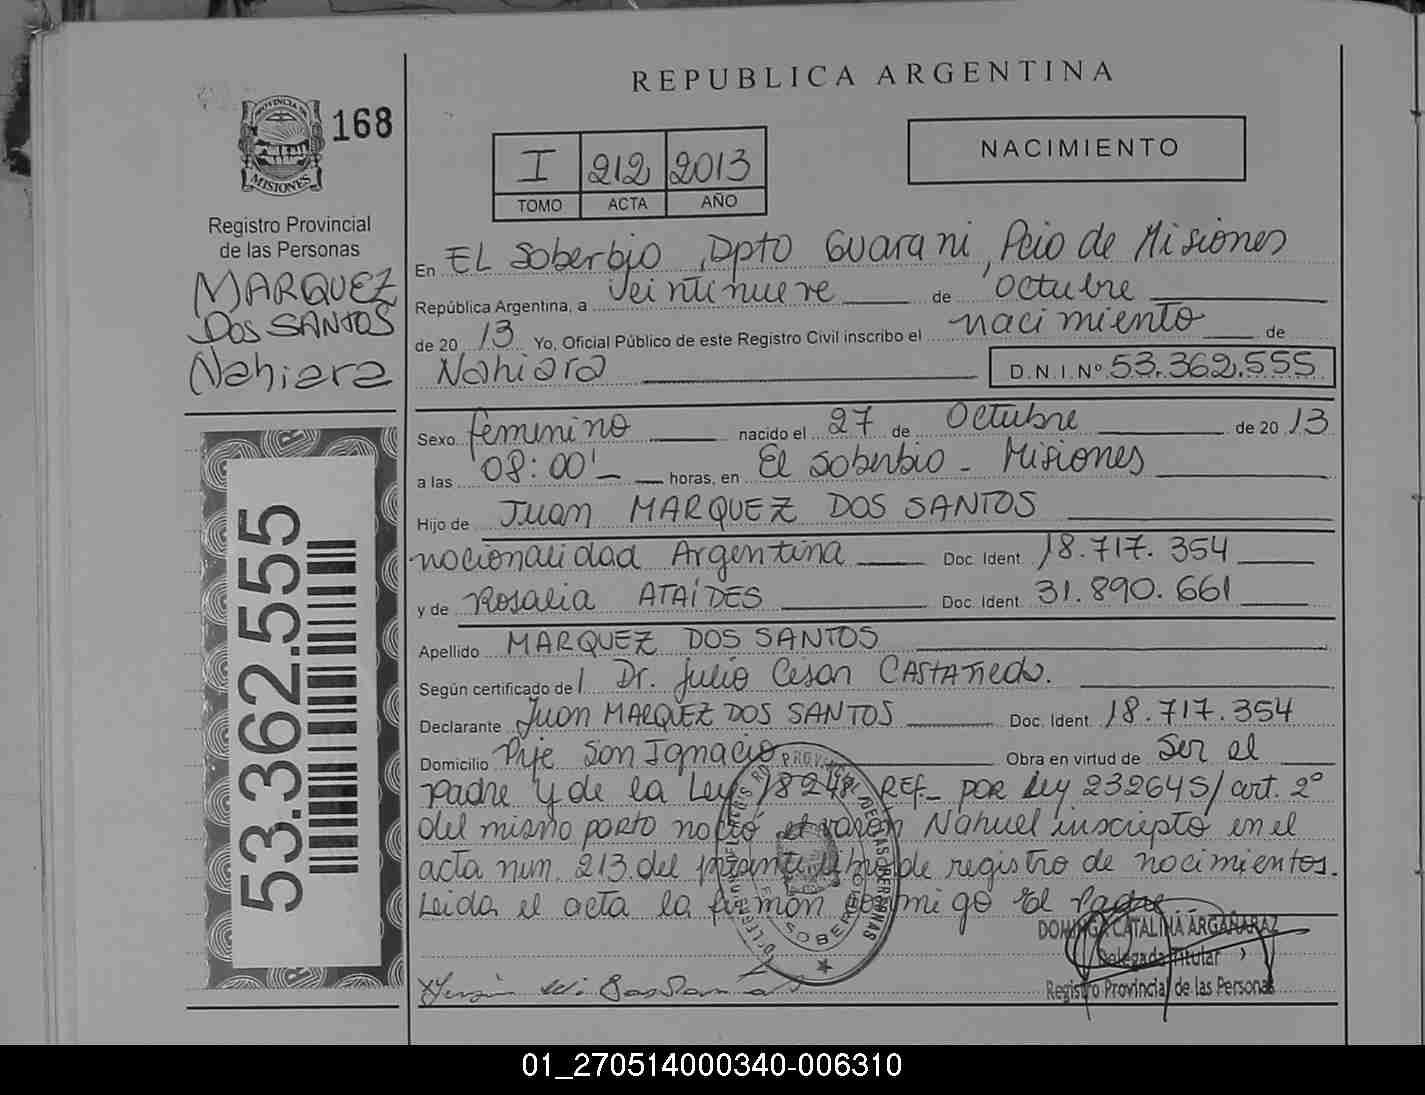 REPUBLICA ARGENTINA
PROVINCIA DE
MISIONES
168
I 212 2013
TOMO ACTA AÑO
NACIMIENTO
Registro Provincial
de las Personas
MARQUEZ
DOS SANTOS
Nahiara
53.362.555
En EL Soberbio, Dpto Guarani, Pcio de Misiones
República Argentina, a veintinueve de Octubre
de 2013 Yo, Oficial Público de este Registro Civil inscribo el nacimiento de
Nahiara D.N.I.Nº 53.362.555
Sexo femenino nacido el 27 de Octubre de 2013
a las 08:00' horas, en El Soberbio - Misiones
Hijo de Juan MARQUEZ DOS SANTOS
nacionalidad Argentina Doc. Ident. 18.717.354
y de Rosalia ATAÍDES Doc. Ident. 31.890.661
Apellido MARQUEZ DOS SANTOS
Según certificado de Dr. Julio Cesar CASTAÑEDA.
Declarante Juan MARQUEZ DOS SANTOS Doc. Ident. 18.717.354
Domicilio Pje San Ignacio Obra en virtud de Ser el
Padre y de la Ley 18248 REF_ POR Ley 232645/art. 2º
del mismo parto nació el varón Nahuel inscripto en el
acta num. 213 del presente libro de registro de nacimientos.
Leida el acta la firman conmigo El Padre
DOMINGA CATALINA ARGAÑARAZ
Delegada Titular
Registro Provincial de las Personas
01_270514000340-006310